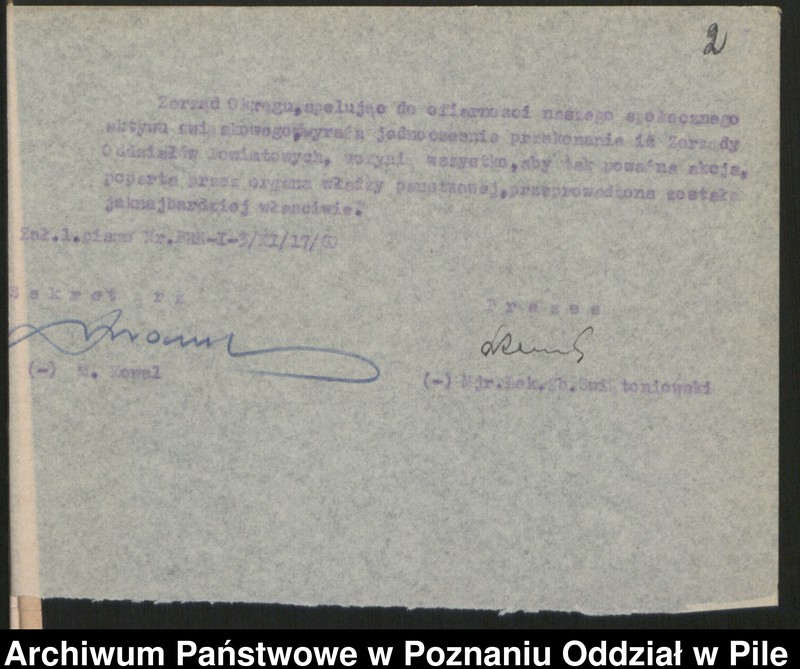 2
Zarząd Okręgu, apelując do ofiarności naszego społecznego
aktywu związkowego, wyraża jednocześnie przekonanie iż Zarządy
Oddziałów Powiatowych, uczynią wszystko, aby tak poważna akcja,
poparta przez organa władzy państwowej, przeprowadzona została
jaknajbardziej właściwie.
Zał.1.pismo Nr.PRN-I-3/XI/17/
S e k r e t a r z
P r e z e s
(-) M. Kowal
(-) Mjr. Zb. Świętoniowski
Archiwum Państwowe w Poznaniu Oddział w Pile